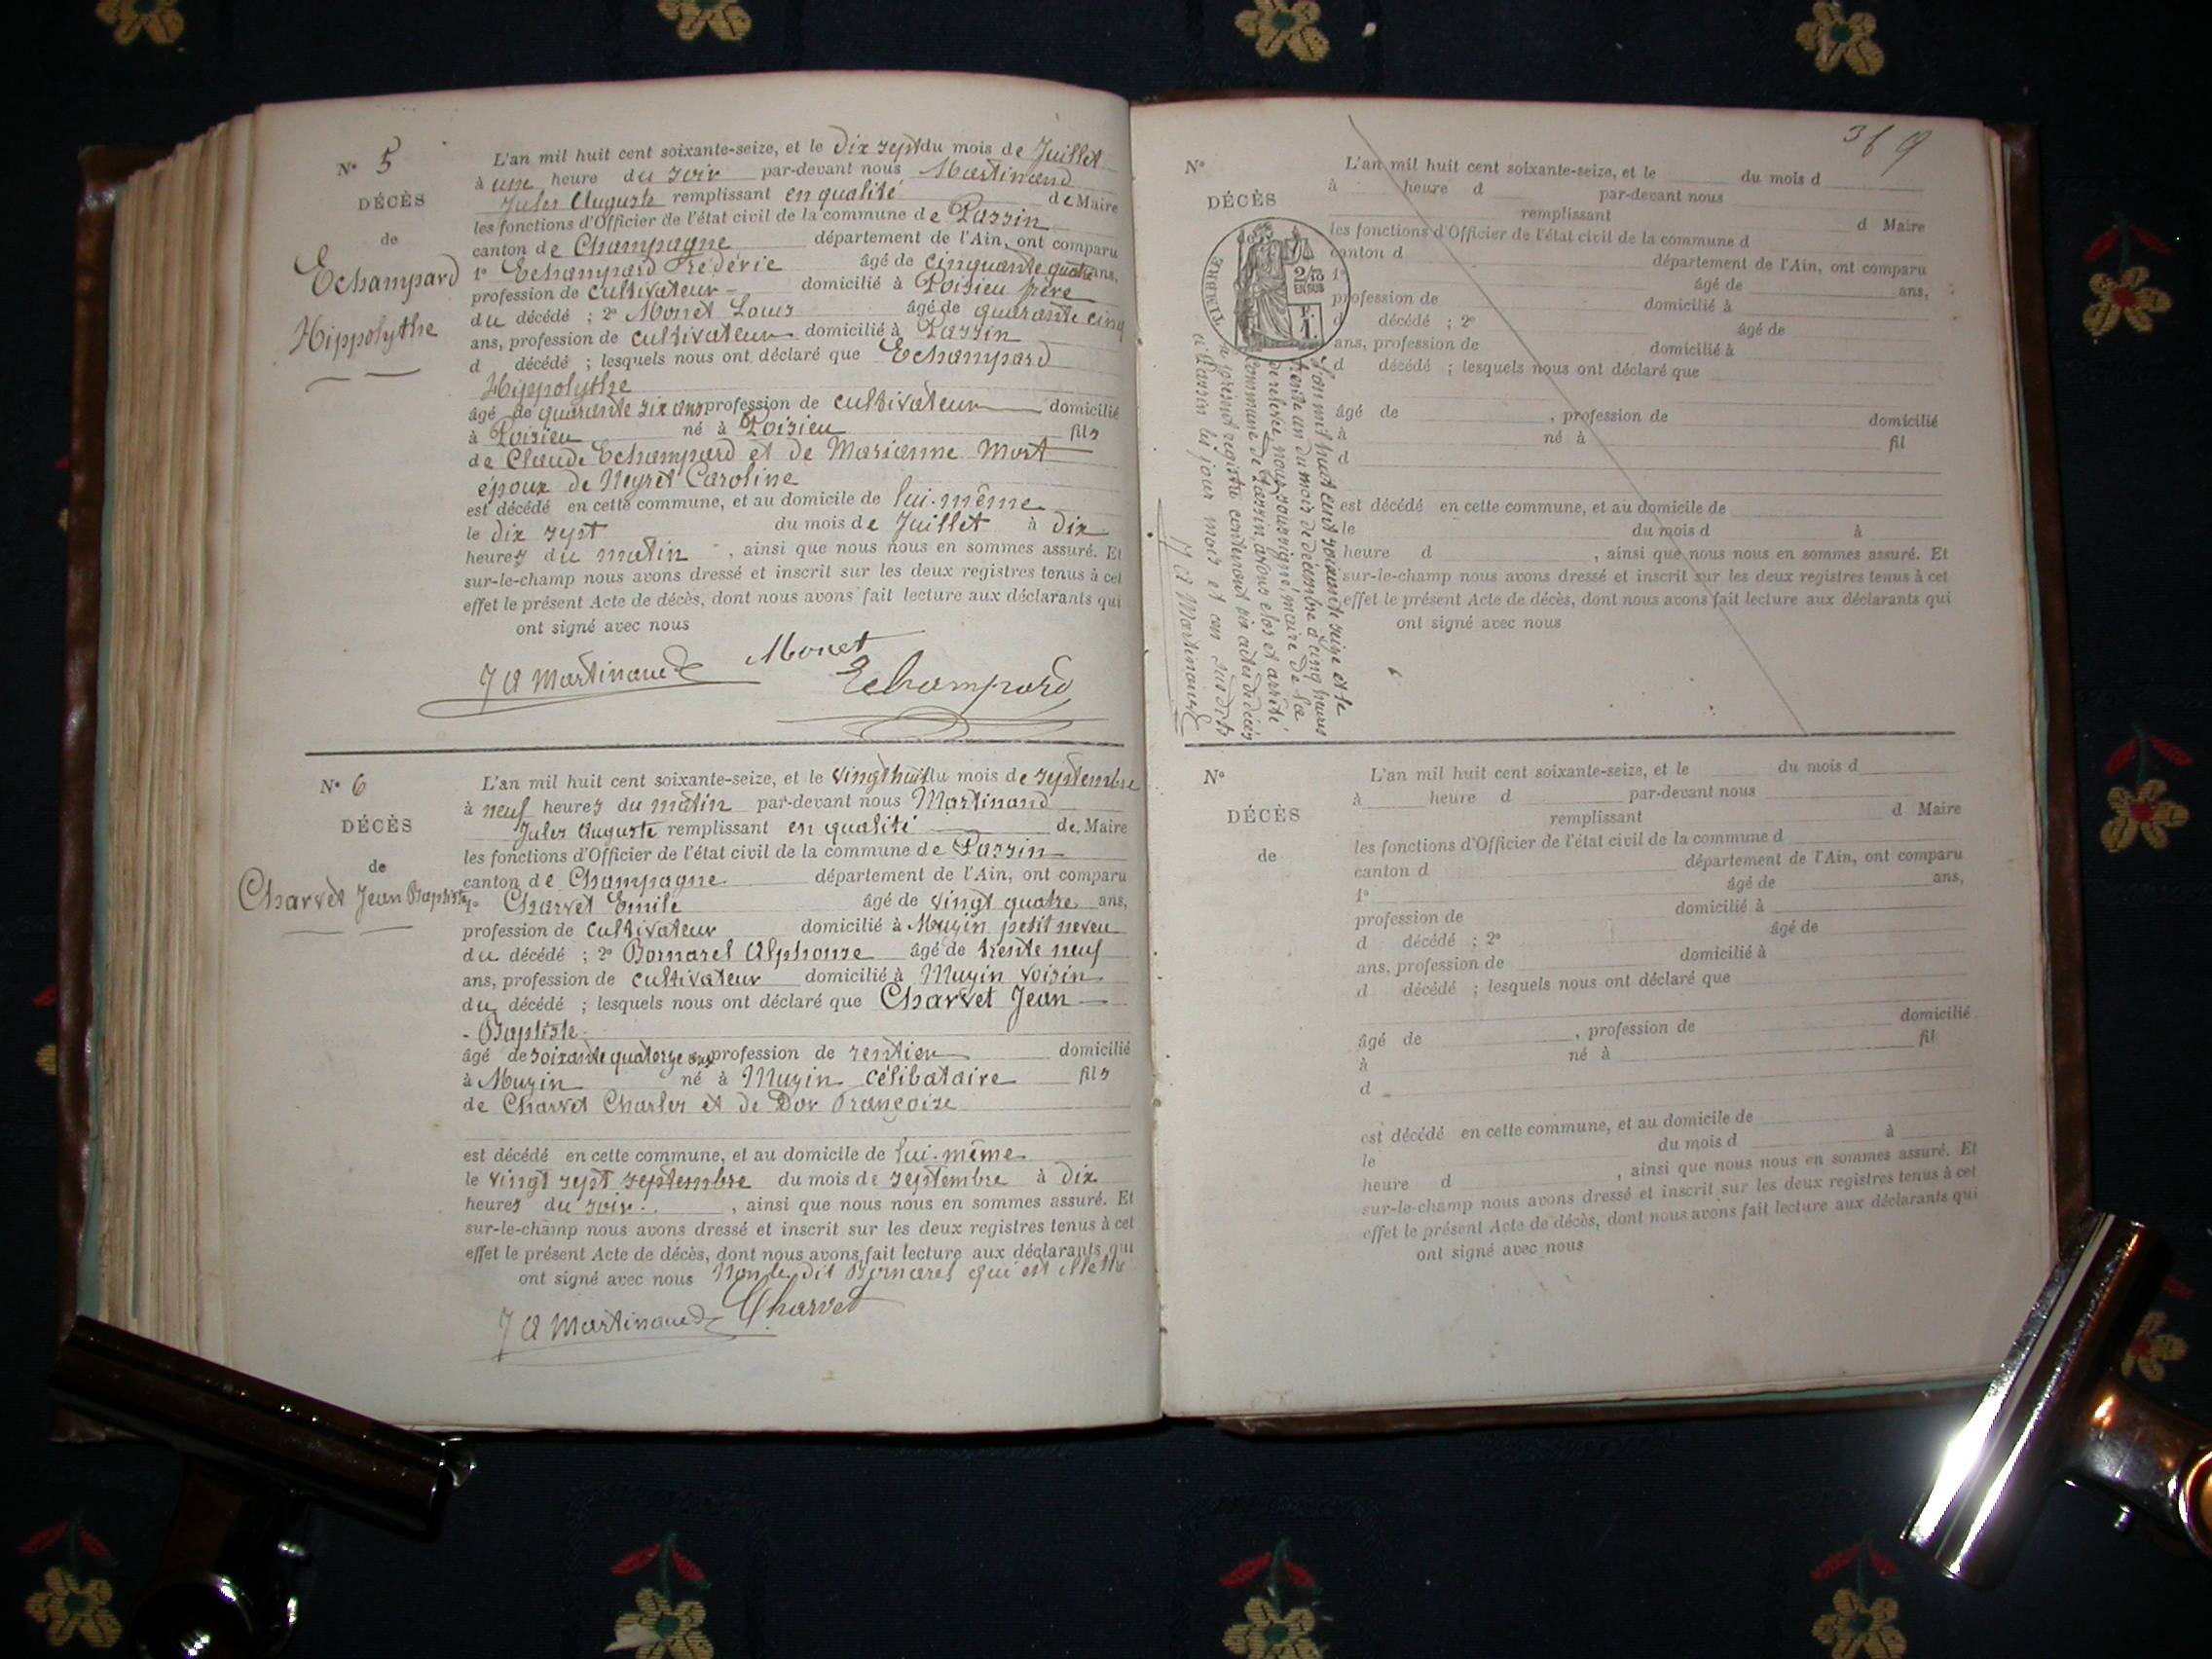 N° 5
DÉCÈS
de
Echampard
Hippolythe
L'an mil huit cent soixante-seize, et le dix sept du mois de Juillet
à une heure du soir par-devant nous Martinand
Jules Auguste remplissant en qualité de Maire
les fonctions d'Officier de l'état civil de la commune de Passin
canton de Champagne département de l'Ain, ont comparu
1° Echampard Frédéric âgé de cinquante quatre ans,
profession de cultivateur domicilié à Poisieu frère
du décédé ; 2° Monet Louis âgé de quarante cinq
ans, profession de cultivateur domicilié à Passin
d décédé ; lesquels nous ont déclaré que Echampard
Hippolythe
âgé de quarante six ans profession de cultivateur domicilié
à Poisieu né à Poisieu fils
de Claude Echampard et de Marianne Mort
époux de Neyret Caroline
est décédé en cette commune, et au domicile de lui-même
le dix sept du mois de Juillet à dix
heures du matin , ainsi que nous nous en sommes assuré. Et
sur-le-champ nous avons dressé et inscrit sur les deux registres tenus à cet
effet le présent Acte de décès, dont nous avons fait lecture aux déclarants qui
ont signé avec nous
J A Martinand Monet
Echampard
N° 6
DÉCÈS
de
Charvet Jean Baptiste
L'an mil huit cent soixante-seize, et le vingt huit du mois de septembre
à neuf heures du matin par-devant nous Martinand
Jules Auguste remplissant en qualité de Maire
les fonctions d'Officier de l'état civil de la commune de Passin
canton de Champagne département de l'Ain, ont comparu
1° Charvet Emile âgé de vingt quatre ans,
profession de cultivateur domicilié à Muzin petit neveu
du décédé ; 2° Bornarel Alphonse âgé de trente neuf
ans, profession de cultivateur domicilié à Muzin voisin
du décédé ; lesquels nous ont déclaré que Charvet Jean
- Baptiste
âgé de soixante quatorze ans profession de rentier domicilié
à Muzin né à Muzin célibataire fils
de Charvet Charles et de Dor Françoise
est décédé en cette commune, et au domicile de lui-même
le vingt sept septembre du mois de septembre à dix
heures du soir , ainsi que nous nous en sommes assuré. Et
sur-le-champ nous avons dressé et inscrit sur les deux registres tenus à cet
effet le présent Acte de décès, dont nous avons fait lecture aux déclarants qui
ont signé avec nous Non le dit Bornarel qui est illettré
J A Martinand Charvet
369
N°
DÉCÈS
de
TIMBRE
2/10
EN SUS
L'an mil huit cent soixante seize et le
trente un du mois de décembre à cinq heures
de relevée, nous soussigné, maire de la
commune de Passin avons clos et arrêté
le présent registre contenant six actes de décès
à Passin les jour mois et an susdits
J A Martinand
L'an mil huit cent soixante-seize, et le du mois d
à heure d par-devant nous
remplissant d Maire
les fonctions d'Officier de l'état civil de la commune d
canton d département de l'Ain, ont comparu
1° âgé de ans,
profession de domicilié à
d décédé ; 2° âgé de
ans, profession de domicilié à
d décédé ; lesquels nous ont déclaré que
âgé de , profession de domicilié
à né à fil
d
est décédé en cette commune, et au domicile de
le du mois d à
heure d , ainsi que nous nous en sommes assuré. Et
sur-le-champ nous avons dressé et inscrit sur les deux registres tenus à cet
effet le présent Acte de décès, dont nous avons fait lecture aux déclarants qui
ont signé avec nous
N°
DÉCÈS
de
L'an mil huit cent soixante-seize, et le du mois d
à heure d par-devant nous
remplissant d Maire
les fonctions d'Officier de l'état civil de la commune d
canton d département de l'Ain, ont comparu
1° âgé de ans,
profession de domicilié à
d décédé ; 2° âgé de
ans, profession de domicilié à
d décédé ; lesquels nous ont déclaré que
âgé de , profession de domicilié
à né à fil
d
est décédé en cette commune, et au domicile de
le du mois d à
heure d , ainsi que nous nous en sommes assuré. Et
sur-le-champ nous avons dressé et inscrit sur les deux registres tenus à cet
effet le présent Acte de décès, dont nous avons fait lecture aux déclarants qui
ont signé avec nous